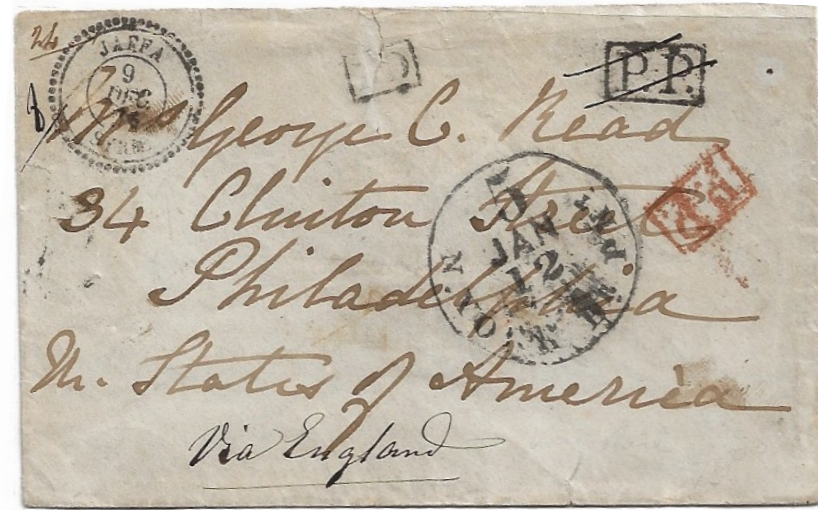 24
JAFFA
9
DEC
SYRIE
8
PD
P.P.
Mrs George C. Read
34 Clinton Street
Philadelphia
U. States of America
Via England
5
JAN
12
N. YORK
P.D.